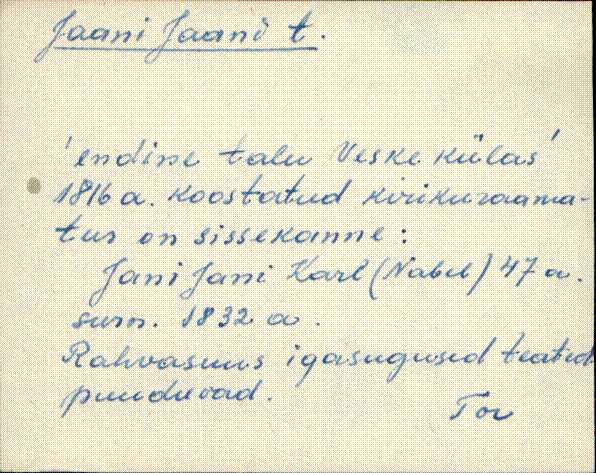 Jaani Jaani t.
'endine talu Veske külas'
1816 a. koostatud kirikuraama-
tus on sissekanne:
Jani Jani Karl (Nabel) 47 a.
surn. 1832 a.
Rahvasuus igasugused teated
puuduvad.
Tor